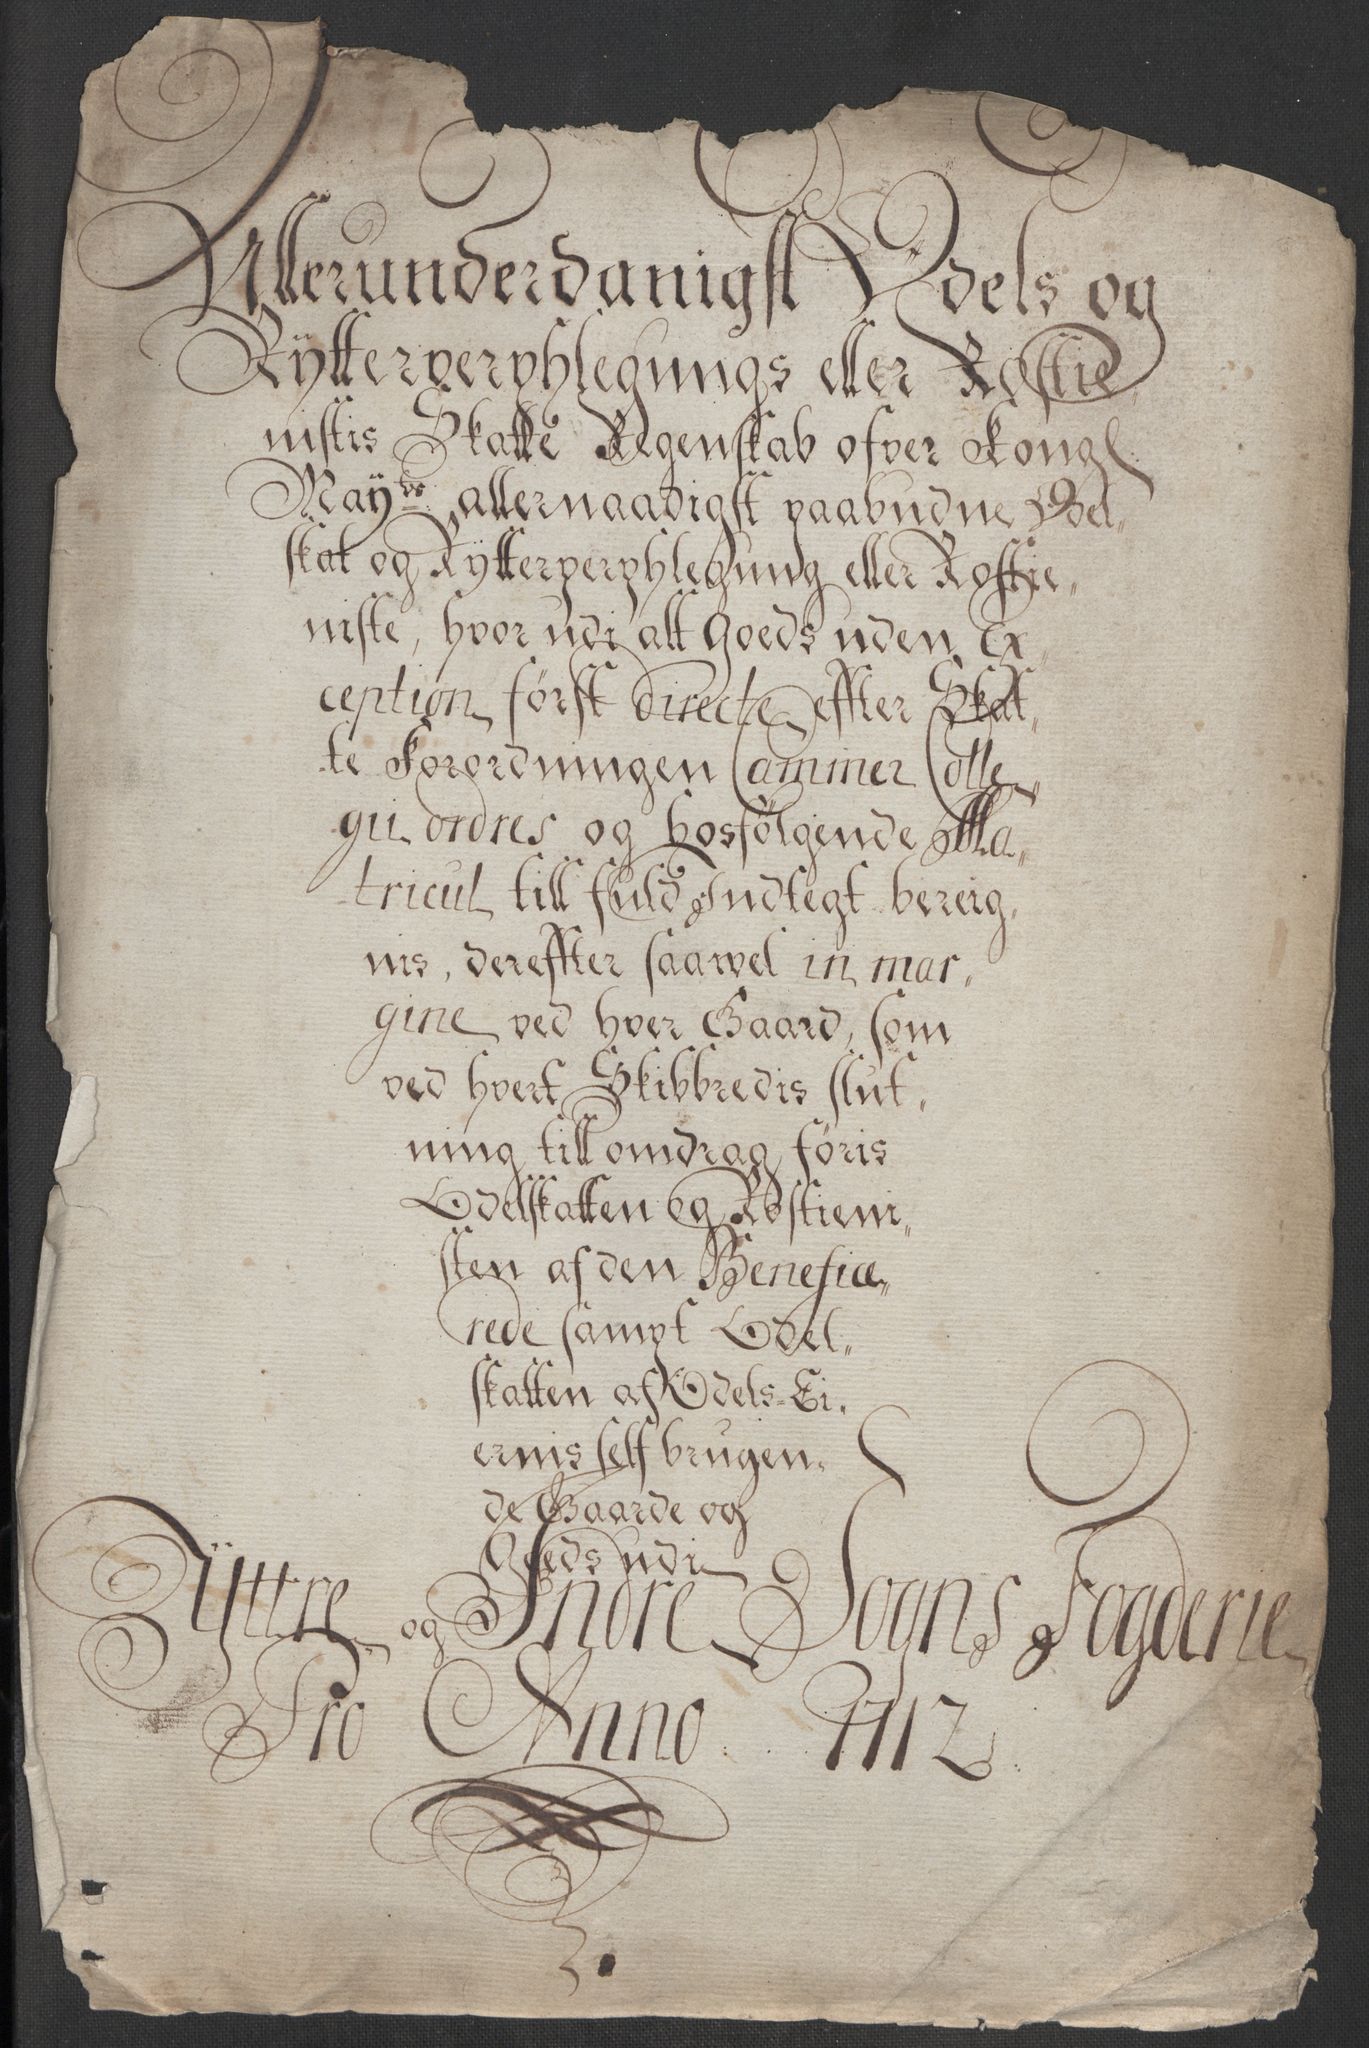 Allerunderdanigst Odels og
Rÿtterverphlegungs eller Rostie„
nistis Skatte Regenskab ofver Kongl
Maÿts allernaadigst paabudne Odel„
skat og Rÿtterverphlegung eller Rostie„
niste, hvor udi alt Goeds uden Ex„
ception först directe effter Skat„
te Forordningen Cammer Colle„
gii ordres og hosfölgende Ma„
tricul till fuld Indtegt bereig„
nis, dereffter saavel in mar„
gine ved hver Gaard, som
ved hvert Skibbredis slut„
ning till omdrag föris
Odelskatten og Rostieni„
sten af den Benefice„
rede sampt Odel„
skatten af Odels-Ei„
ernis self brugen„
de Gaarde og
Goeds udi
Ÿttre og Indre Sogns Fogderie
Pro Anno 1712